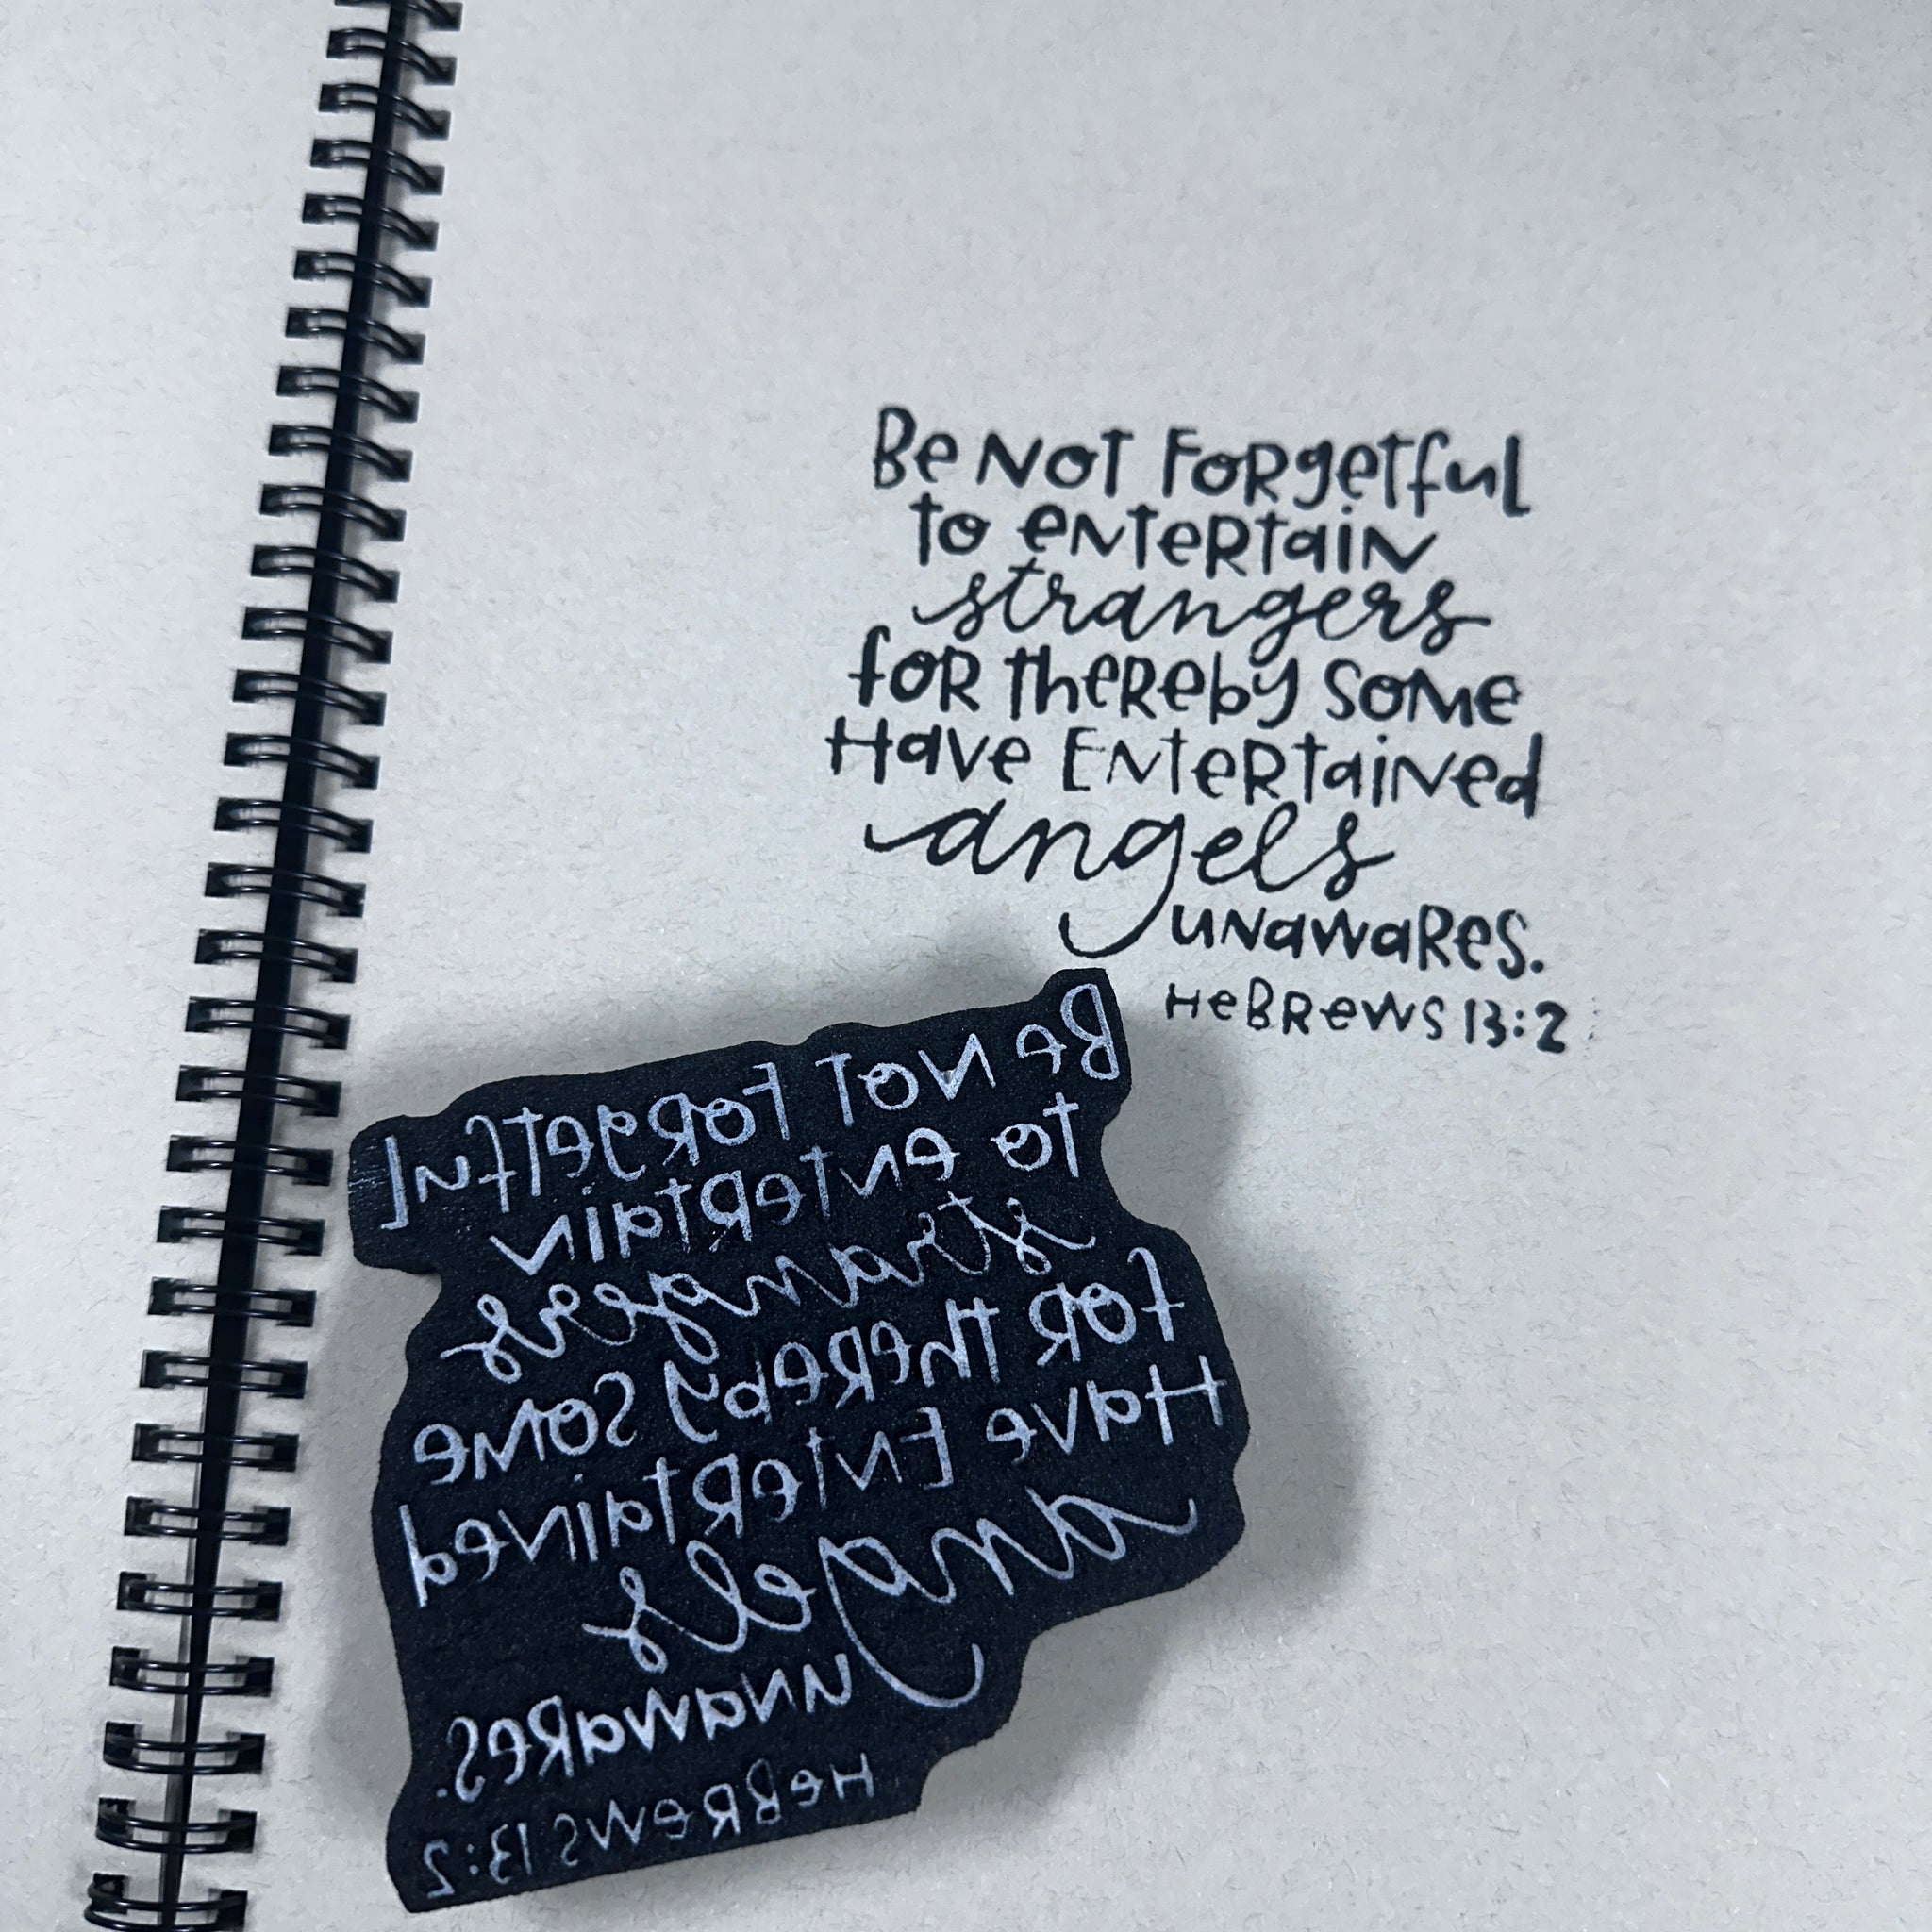 Be NOT FORgetful
to eNteRtaiN
strangers
foR theReby SoMe
Have ENteRtaiNed
angels
uNawaRes.
HeBRewS 13:2
Be NOT FORgetful
to eNteRtaiN
strangers
foR theReby SoMe
Have ENteRtaiNed
angels
uNawaRes.
HeBRewS 13:2